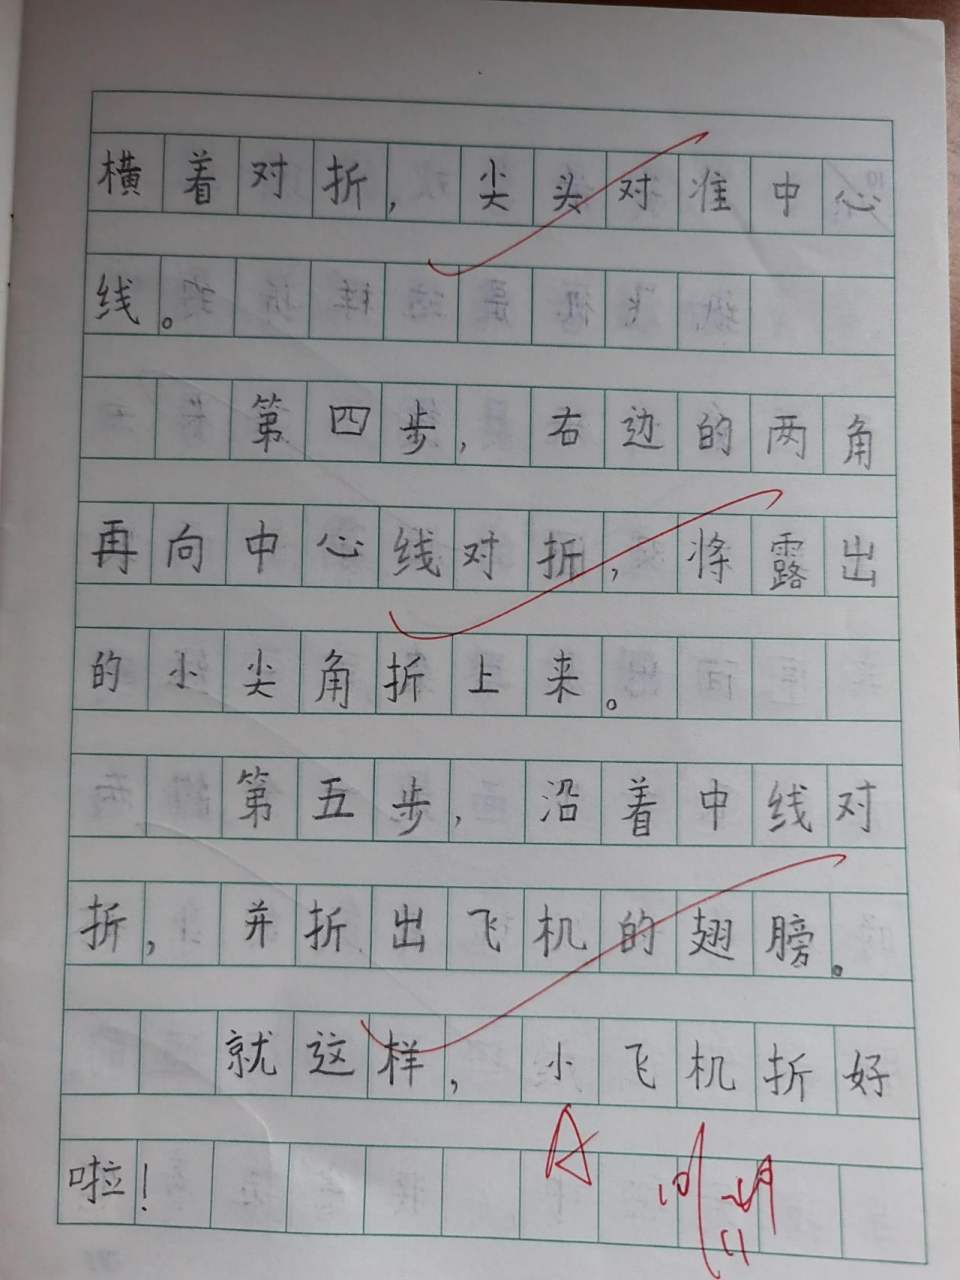 横着对折，尖头对准中心
线。
第四步，右边的两角
再向中心线对折，将露出
的小尖角折上来。
第五步，沿着中线对
折，并折出飞机的翅膀。
就这样，小飞机折好
啦！
A